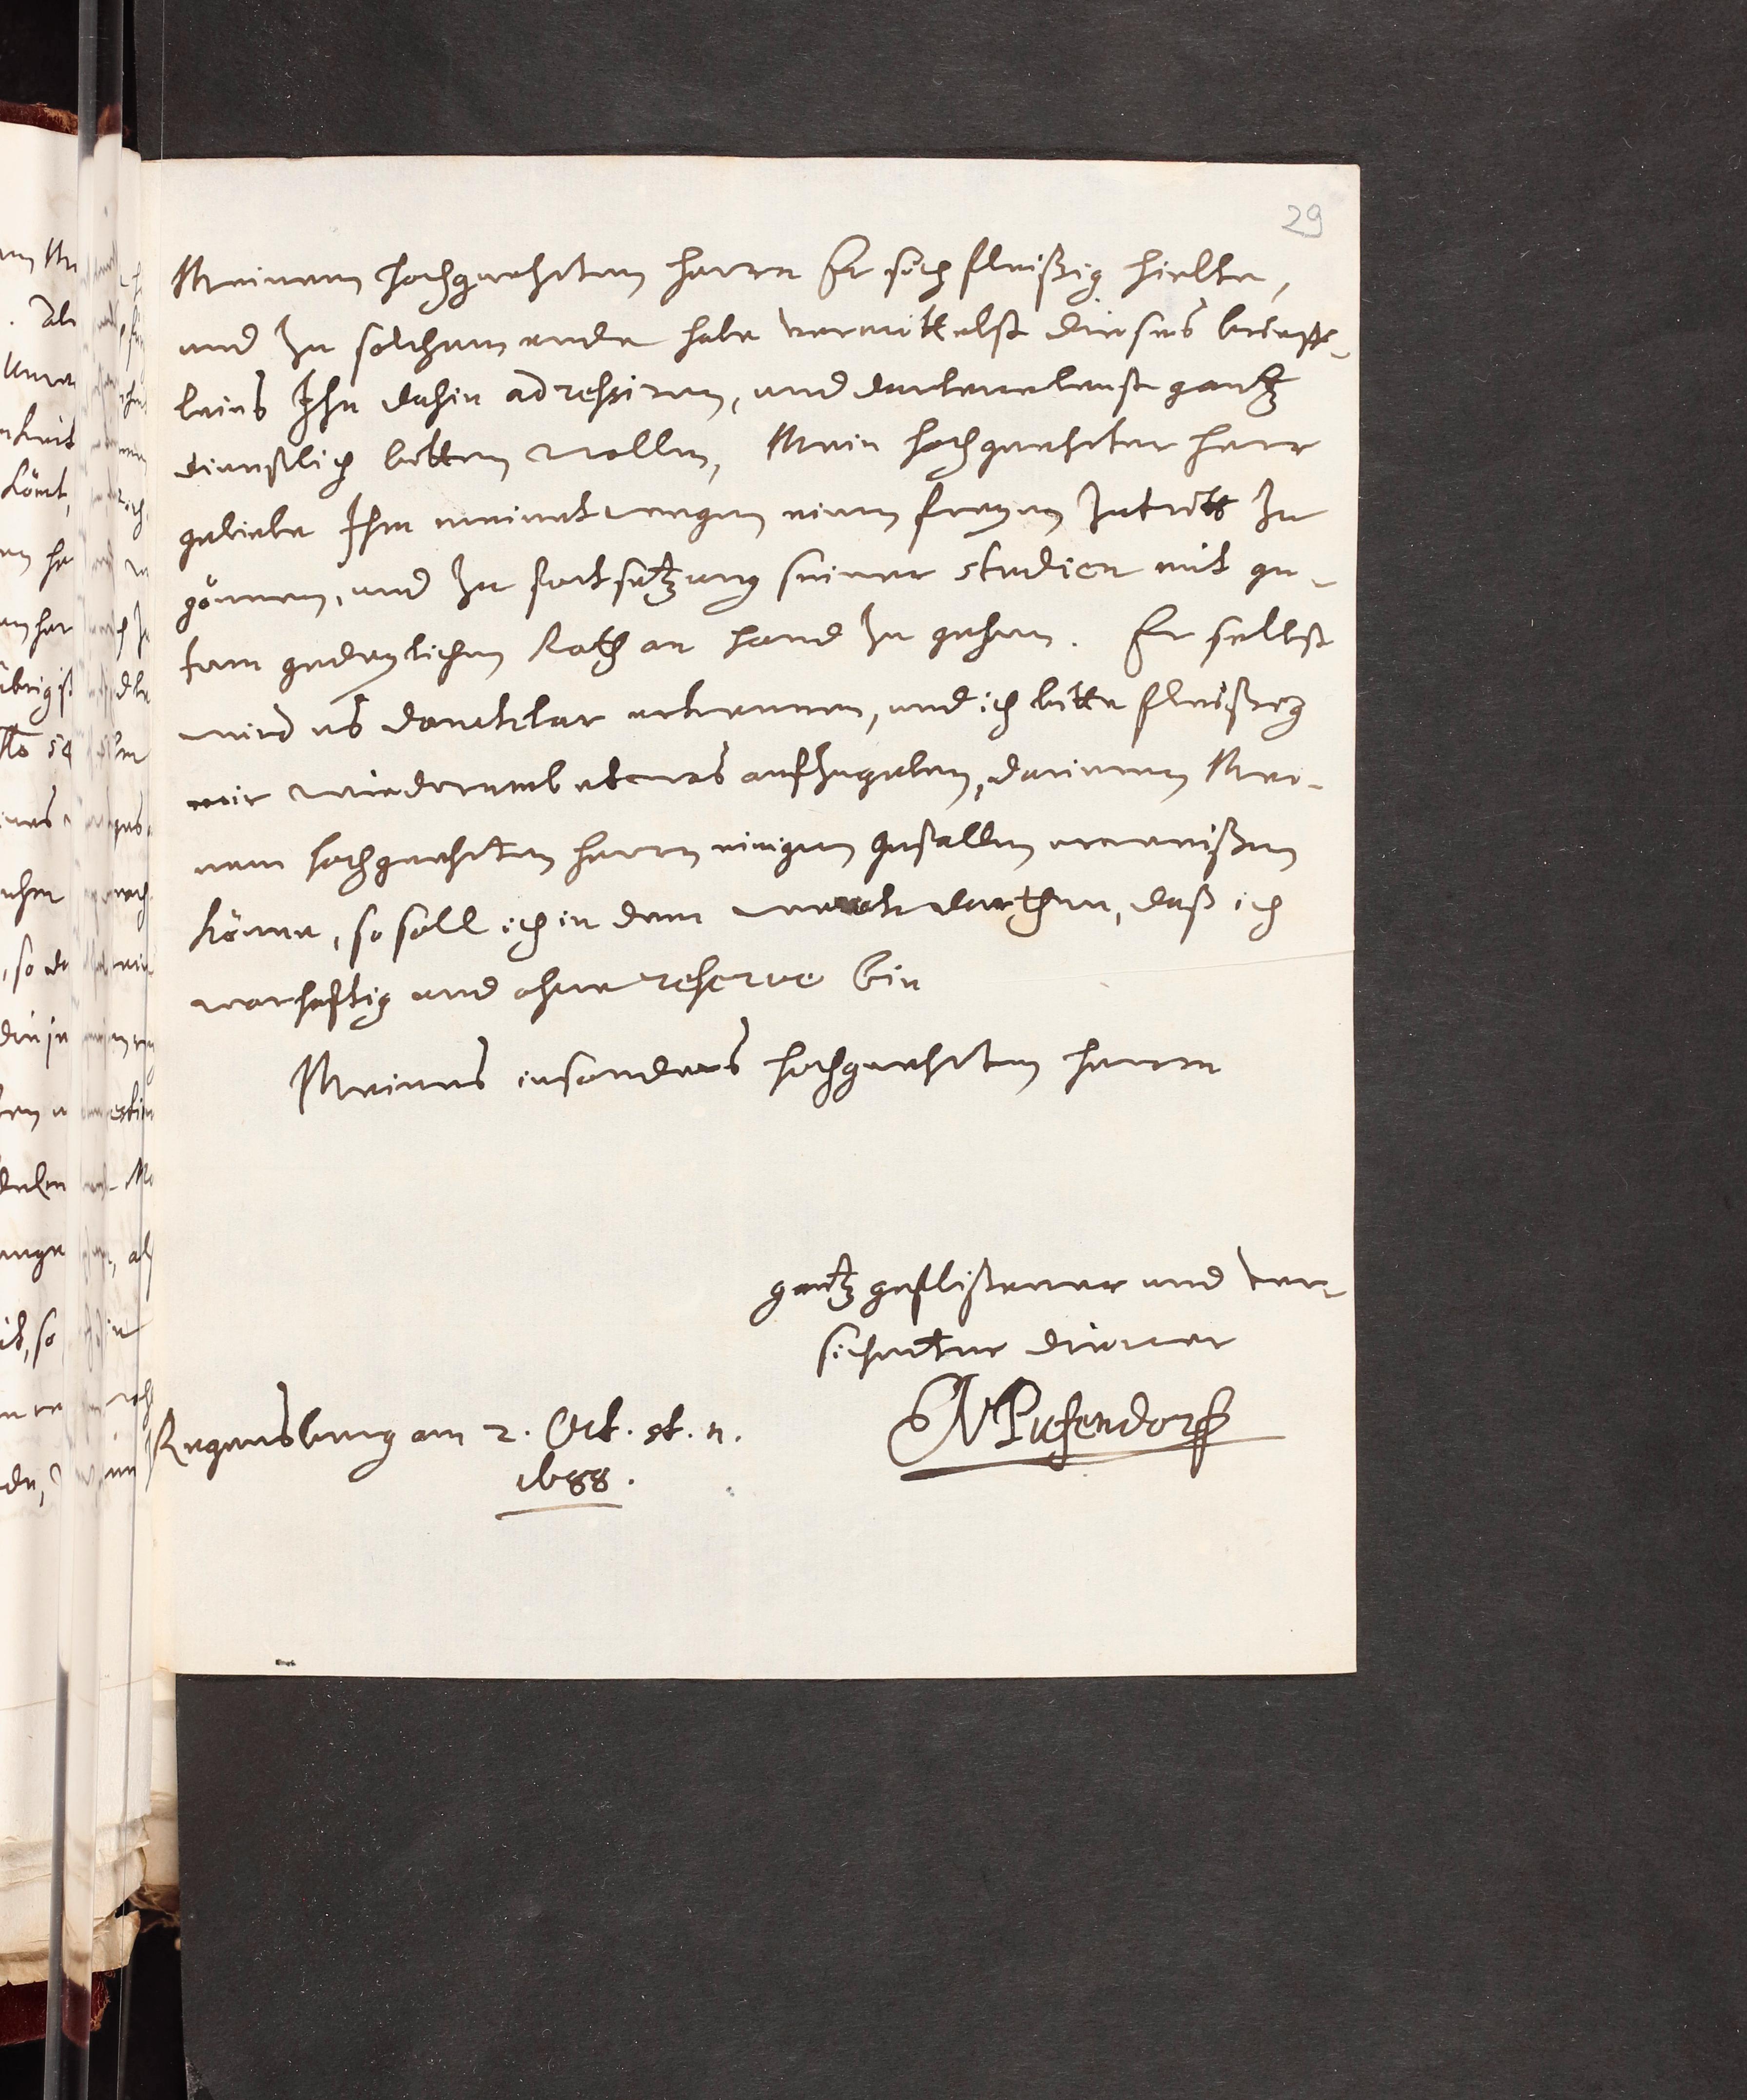 29
Meinem hochgeehrten herrn Er sich fleißig hielte,
und zu solchem ende habe vermittelst dieses brieff-
leins Ihn dahin adressiren, und darbenebenst gantz
dienstlich bitten wollen, Mein hochgeehrter herr
geliebe Ihm meinetwegen einen freyen Zutritt zu
gönnen, und zu fortsetzung seiner studien mit gu-
tem gedeylichen Rath an hand zu gehen. Er selbst
wird es danckbar erkennen, und ich bitte fleißig
mir wiederumb etwas aufzugeben, darinnen Mei-
nem hochgeehrten herrn einigen gefallen erweißen
könne, so soll ich in dem werck darthun, daß ich
warhafftig und ohne reserve bin
Meines insonders hochgeehrten herrn
gantz geflißener und ver-
sicherter diener
Pufendorff
Regensburg am 2. Oct. st. n.
1688.